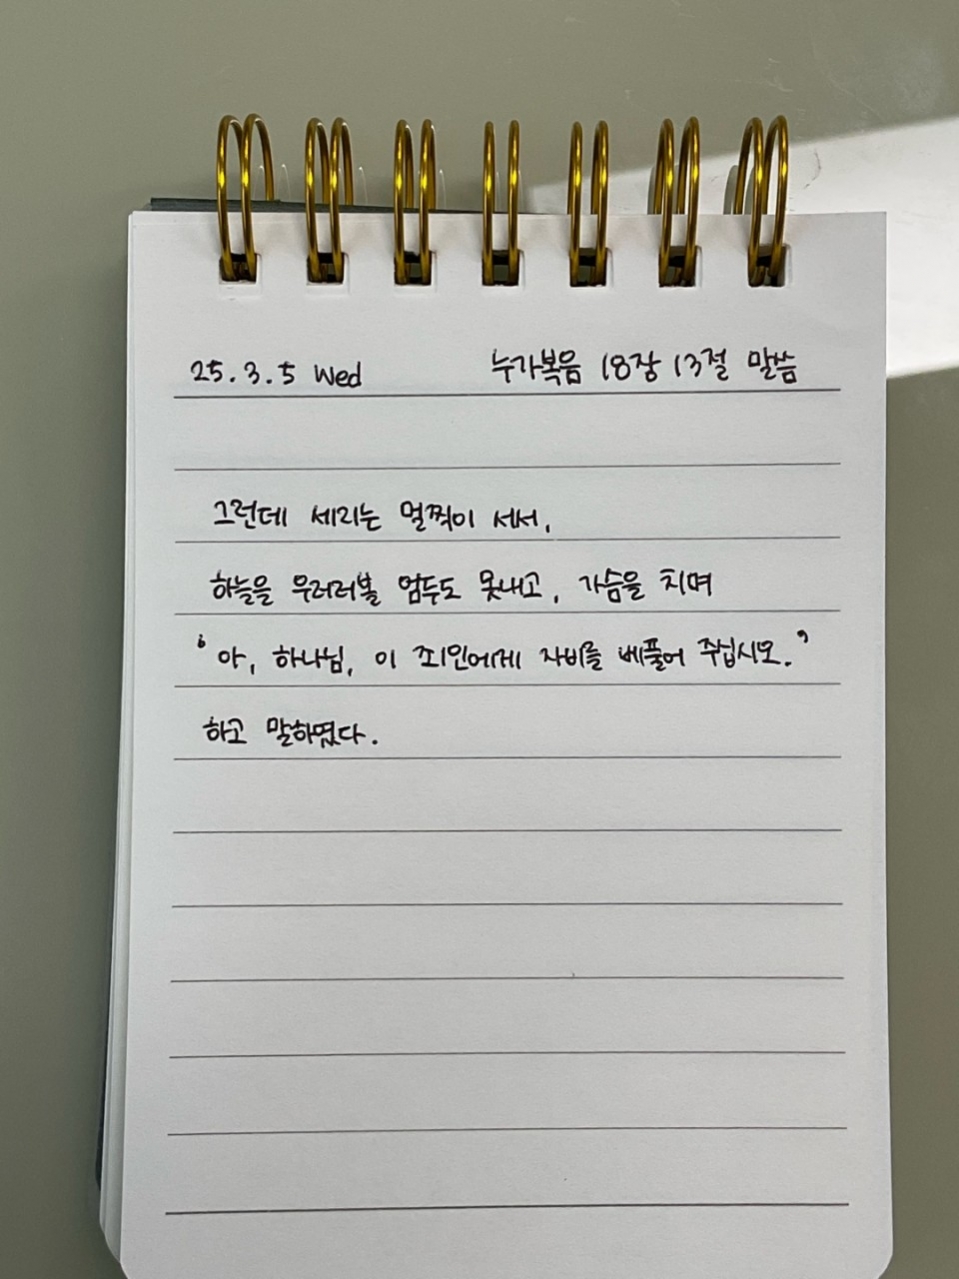 25.3.5 Wed 누가복음 18장 13절 말씀
그런데 세리는 멀찍이 서서,
하늘을 우러러볼 엄두도 못내고, 가슴을 치며
‘아, 하나님, 이 죄인에게 자비를 베풀어 주십시오.’
하고 말하였다.